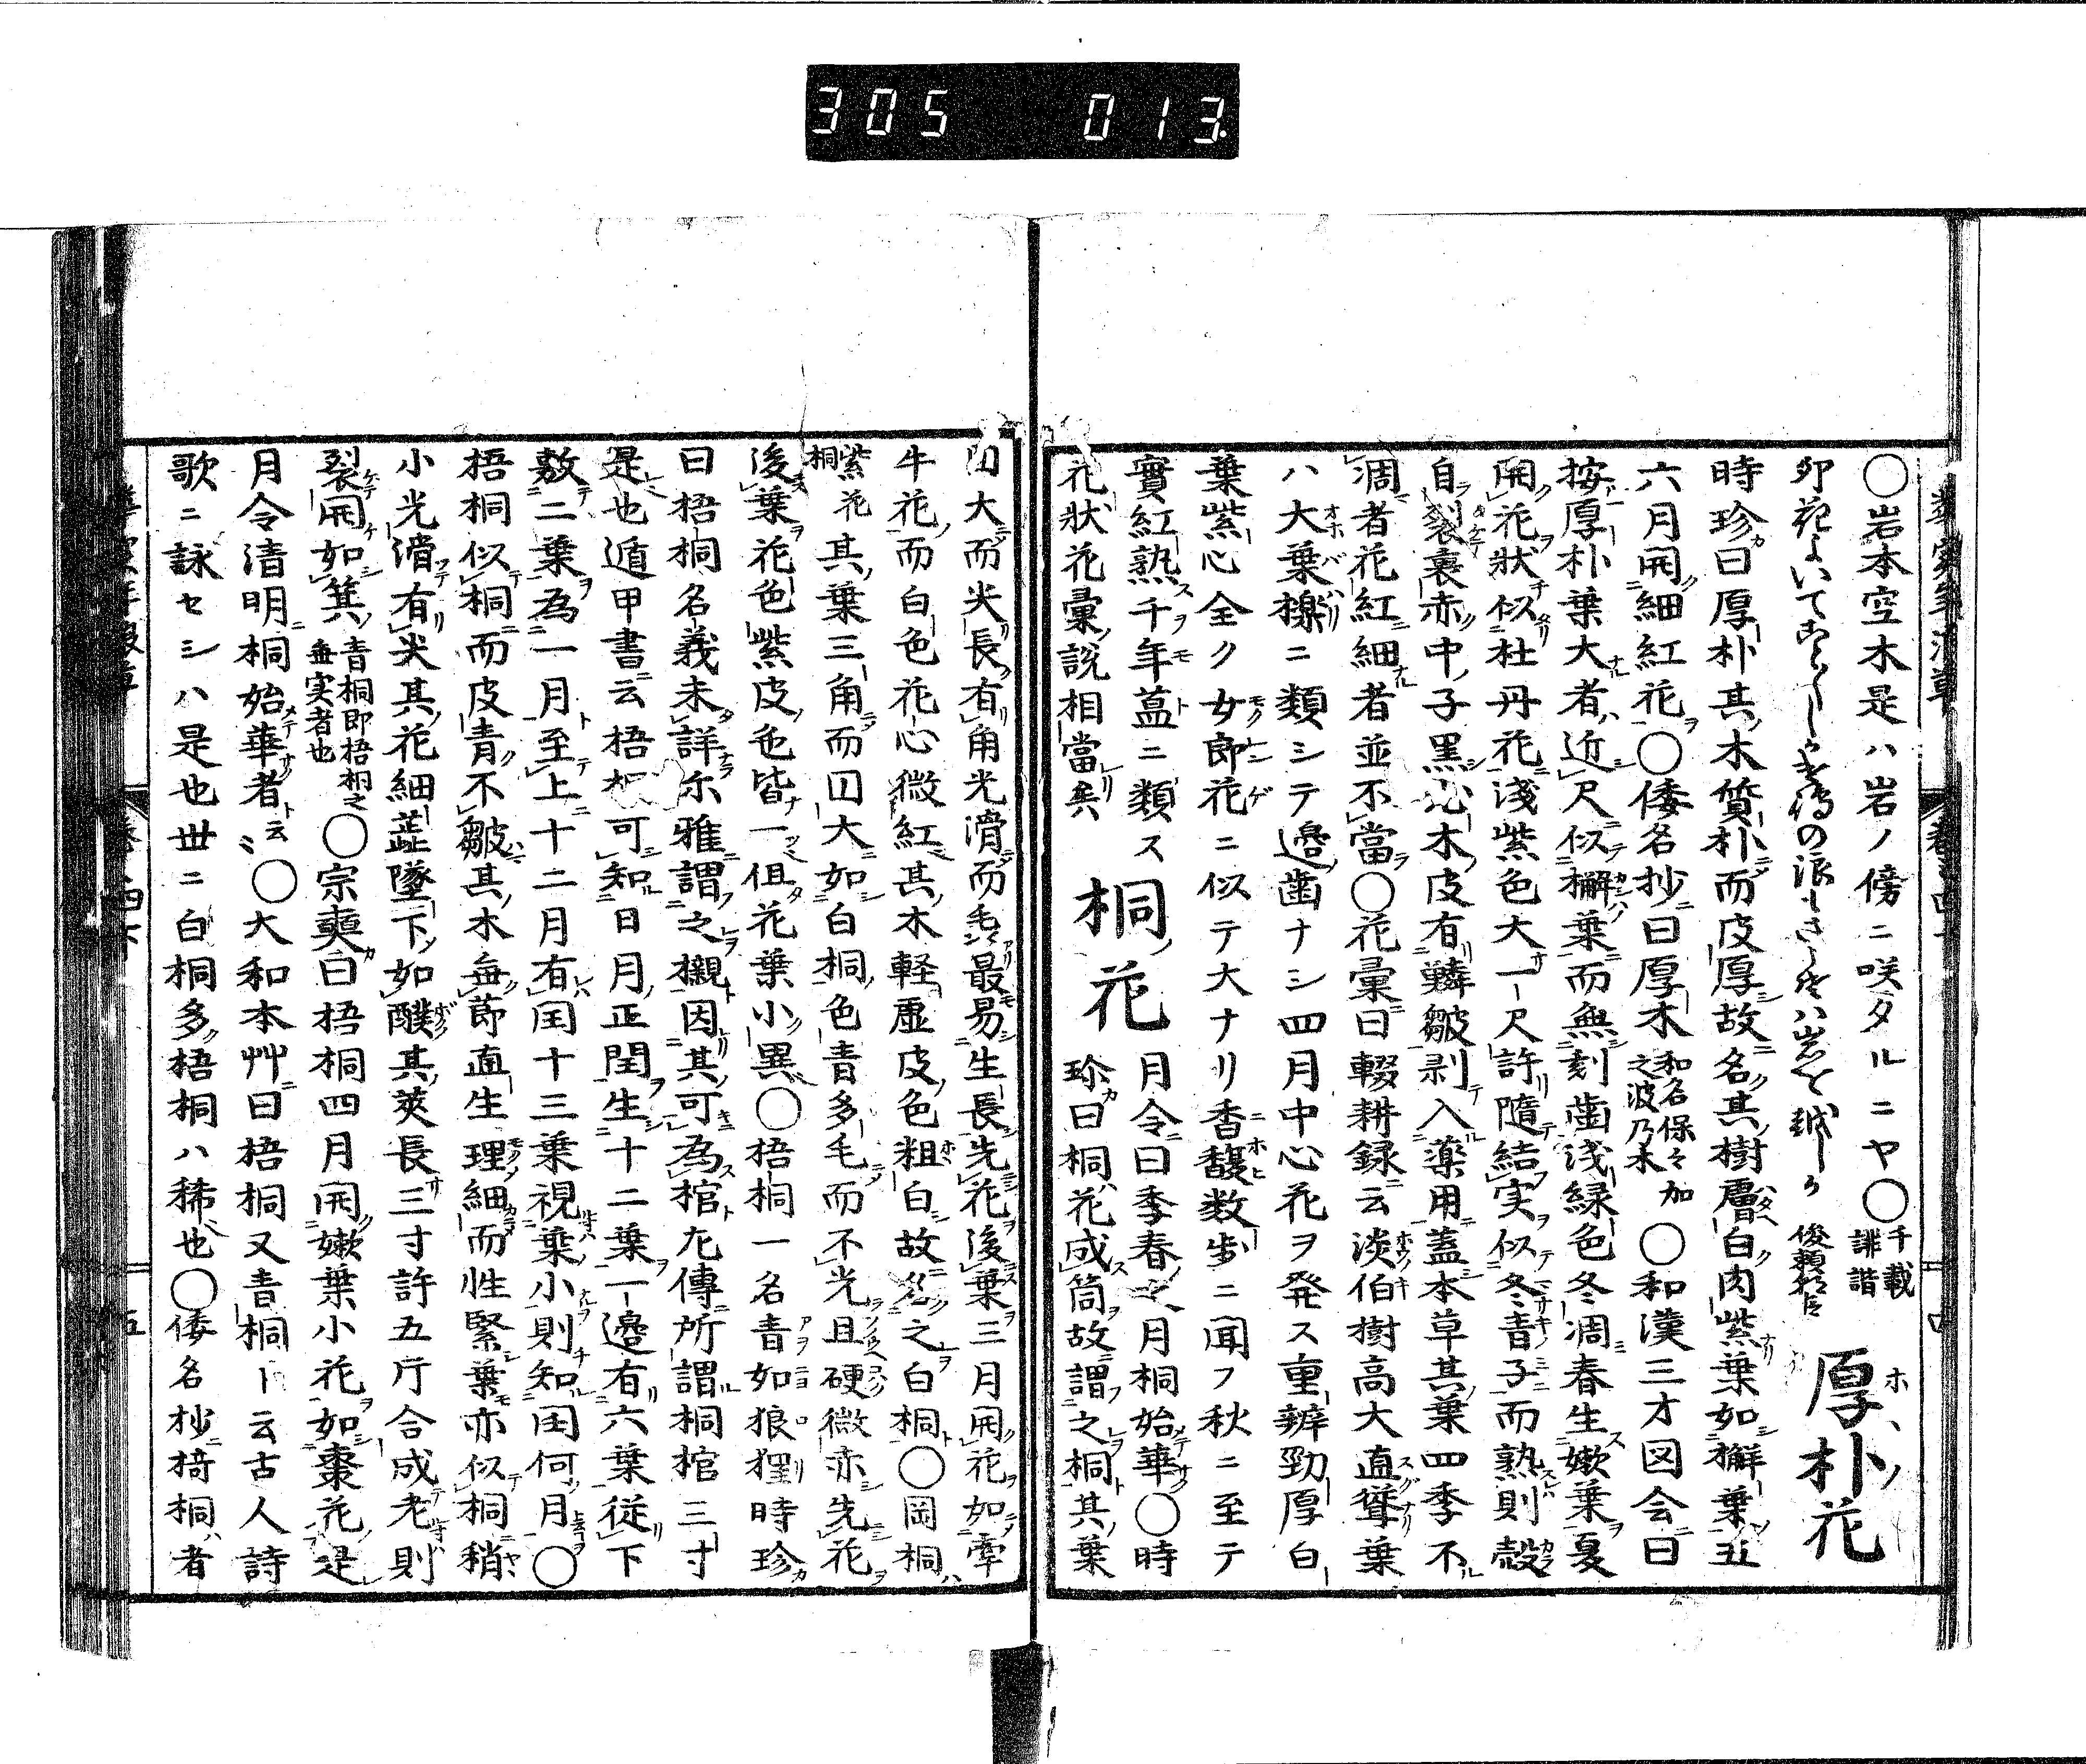 305 013
○岩本空木是ハ岩ノ傍ニ咲タルニヤ○千載誹諧
卯花よ
俊頼朝臣 厚朴花 ホヽノ
時珍曰厚朴其木質朴而皮厚故名其樹層白肉紫葉如檞葉五
六月開細紅花○倭名抄曰厚木和名保々加之波乃木○和漢三才図会曰
按厚朴葉大者近尺似檞葉而無刻歯浅緑色冬凋春生嫩葉夏
開花状似杜丹花淺紫色大一尺許隨結実似冬青子而熟則殻
自裂裏赤中子黒心木皮有鱗皺剥入薬用蓋本草其葉四季不
凋者花紅細者並不當○花彙曰輟耕録云淡伯樹高大直聳葉
ハ大葉櫟ニ類シテ邉歯ナシ四月中心花ヲ発ス重瓣勁厚白
葉紫心全ク女郎花ニ似テ大ナリ香馥数歩ニ聞フ秋ニ至テ
實紅熟千年蒕ニ類ス 桐花 月令曰季春之月桐始華○時
花状花彙説相當矣 珍曰桐花成筒故謂之桐其葉
大而尖長有角光滑而毛最易生長先花後葉三月開花如牽
牛花而白色花心微紅其木軽虚皮色粗白故名之白桐○岡桐
紫花桐其葉三角而団大如白桐色青多毛而不光且硬微赤先花
後葉花色紫皮色皆一但花葉小異○梧桐一名青如狼狸時珍
曰梧桐名義未詳尓雅謂之櫬因其可為棺尤傳所謂桐棺三寸
是也遁甲書云梧桐可知日月正閏生十二葉一邉有六葉従下
数二葉為一月至上十二月有閏十三葉視葉小則知閏何月○
梧桐似桐而皮青不皺其木無節直生理細而性緊葉亦似桐稍
小光滑有尖其花細蕋墜下如醭其莢長三寸許五片合成老則
裂開如箕青桐即梧桐之無実者也○宗奭曰梧桐四月開嫩葉小花如棗花是
月令清明桐始華者云〻○大和本艸曰梧桐又青桐ト云古人詩
歌ニ詠セシハ是也世ニ白桐多梧桐ハ稀也○倭名抄椅桐者